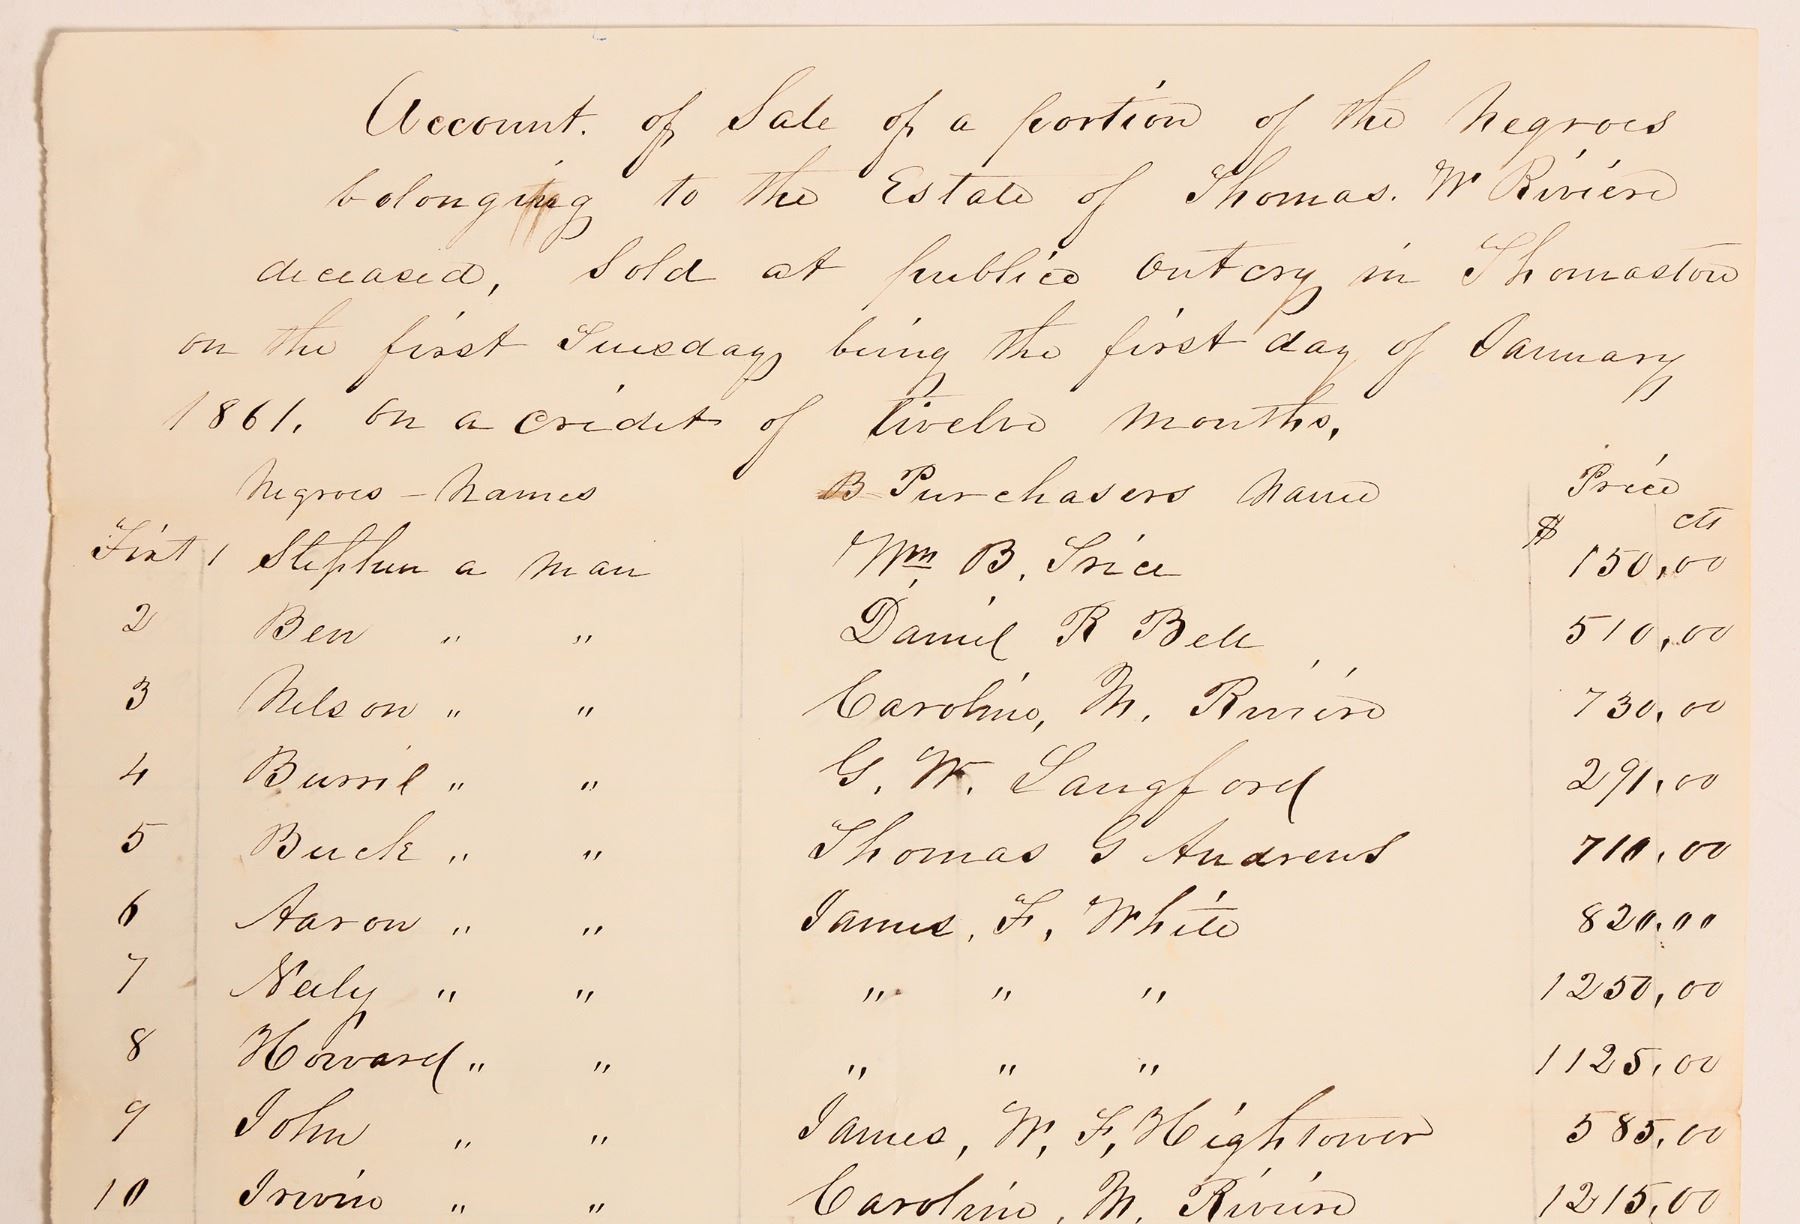 Account. of Sale of a portion of the Negroes
belonging to the Estate of Thomas. W Riviere
deceased, Sold at public Outcry in Thomaston
on the first Tuesday being the first day of January
1861. on a credit of twelve months,
Negroes - Names B Purchasers Name Price
$ cts
First 1 Stephen a man Wm B. Trice 150.00
2 Ben " " Daniel R Bell 510.00
3 Nelson " " Caroline, M. Riviere 730.00
4 Burril " " G. W. Langford 291.00
5 Buck " " Thomas G Andrews 710.00
6 Aaron " " James, F, White 820.00
7 Nealy " " " " " 1250.00
8 Howard " " " " " 1125.00
9 John " " James, W, F, Hightower 585.00
10 Irwin " " Caroline, M. Riviere 1215.00